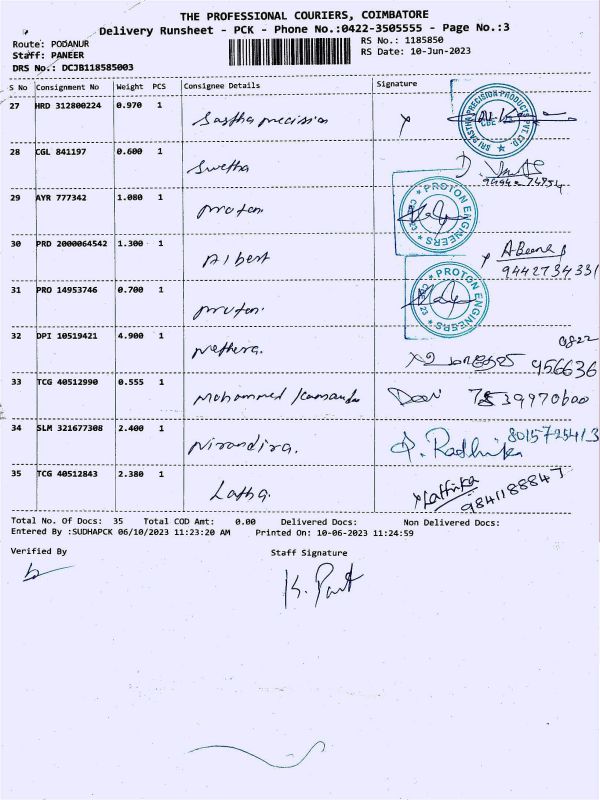 THE PROFESSIONAL COURIERS, COIMBATORE
Delivery Runsheet - PCK - Phone No.:0422-3505555 - Page No.:3
Route: PODANUR
RS No.: 1185850
Staff: PANEER
RS Date: 10-Jun-2023
DRS No.: DCJB118585003
S No Consignment No Weight PCS Consignee Details Signature
27 HRD 312800224 0.970 1 Sastha precission
SRI SASTHA PRECISION PRODUCTS PVT. LTD. CBE
28 CGL 841197 0.600 1 Swetha
29 AYR 777342 1.080 1 proton
PROTON ENGINEERS
30 PRD 2000064542 1.300 1 Albert
9442734331
31 PRO 14953746 0.700 1 proton
PROTON ENGINEERS
32 DPI 10519421 4.900 1
9822
956636
33 TCG 40512990 0.555 1 Mohammed
34 SLM 321677308 2.400 1 Nirandira. P. Radhika 8015725413
35 TCG 40512843 2.380 1 Latha. Lathika
9841188847
Total No. Of Docs: 35 Total COD Amt: 0.00 Delivered Docs: Non Delivered Docs:
Entered By :SUDHAPCK 06/10/2023 11:23:20 AM Printed On: 10-06-2023 11:24:59
Verified By Staff Signature